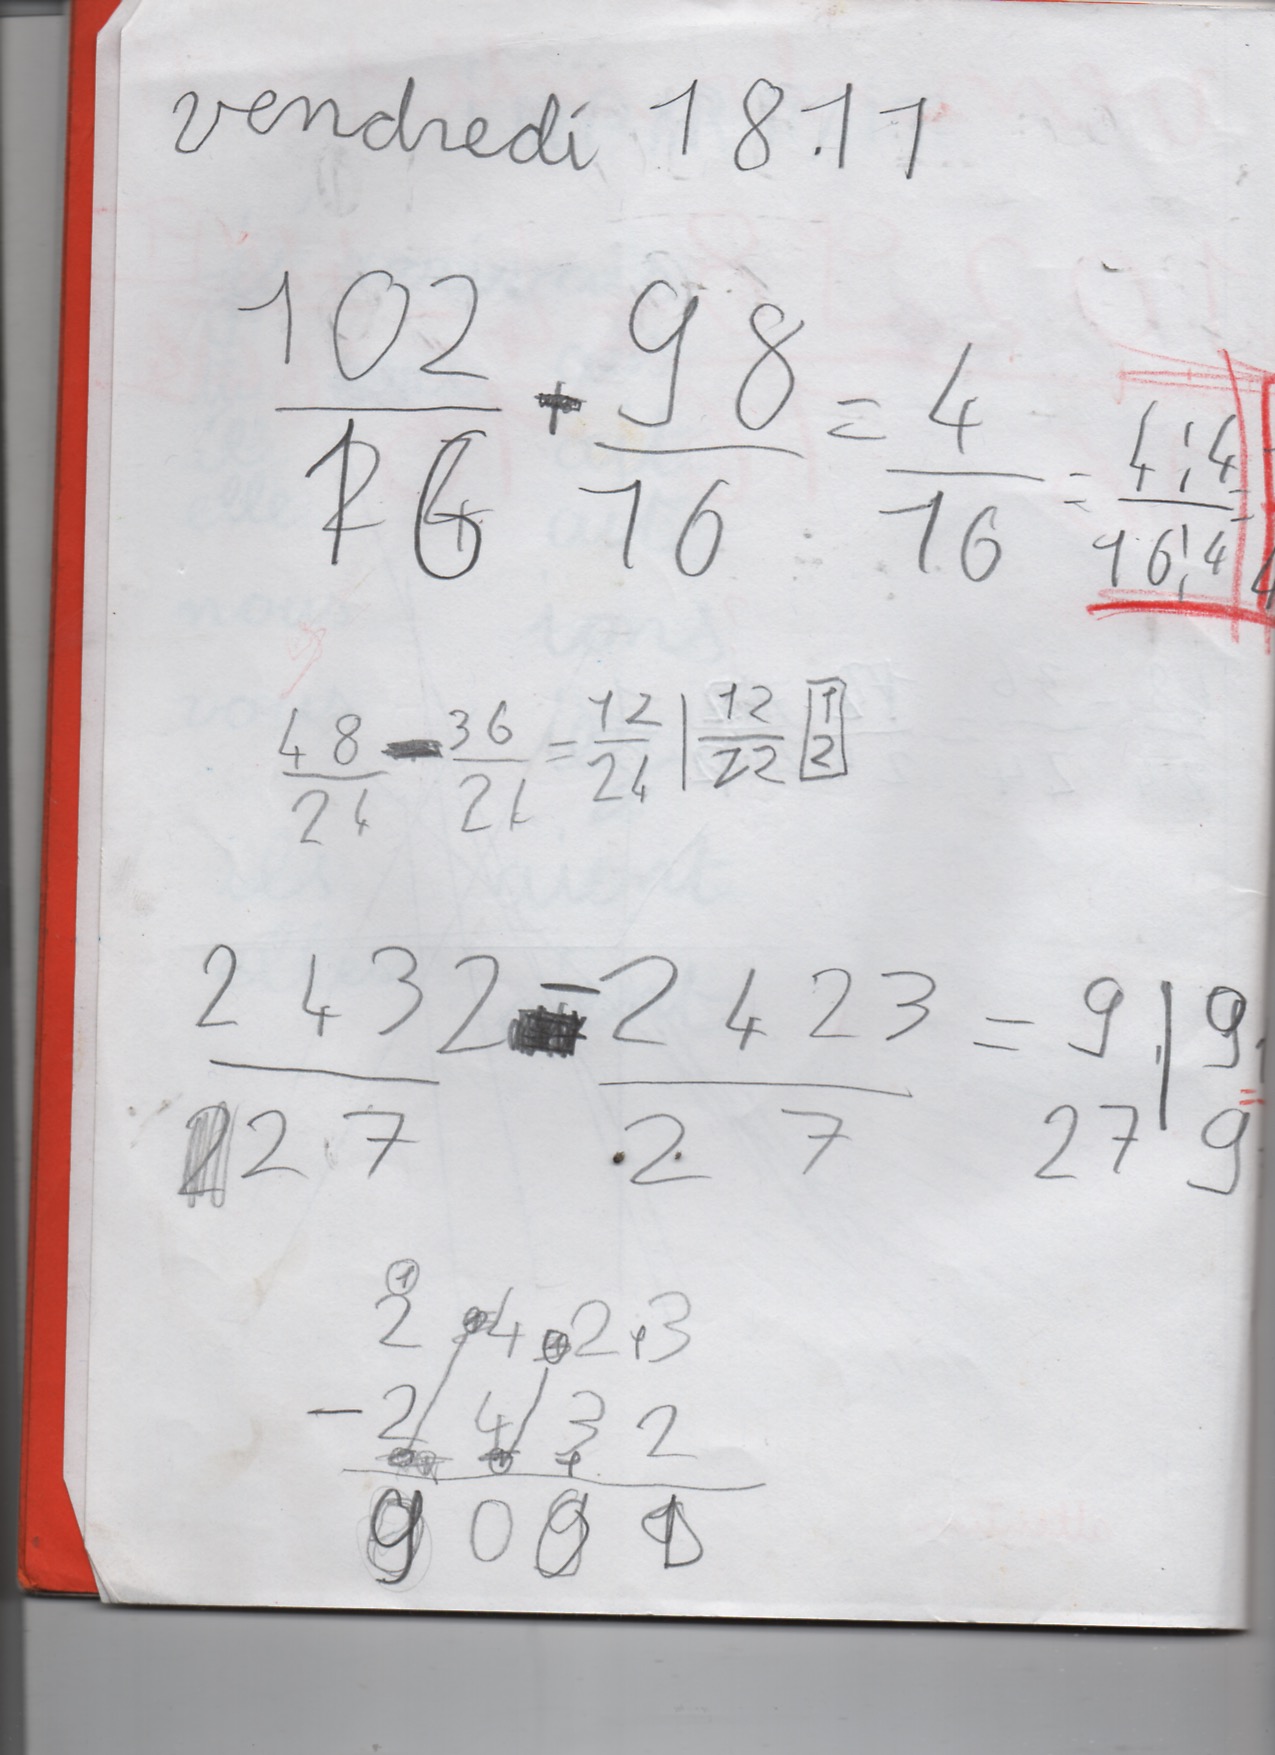 vendredi 18.11
102/16 - 98/16 = 4/16 = 4:4/16:4 =
48/24 - 36/24 = 12/24 | 12/22 1/2
2432/27 - 2423/27 = 9/27 | 9/9
2 4 2 3
- 2 4 3 2
9 0 9